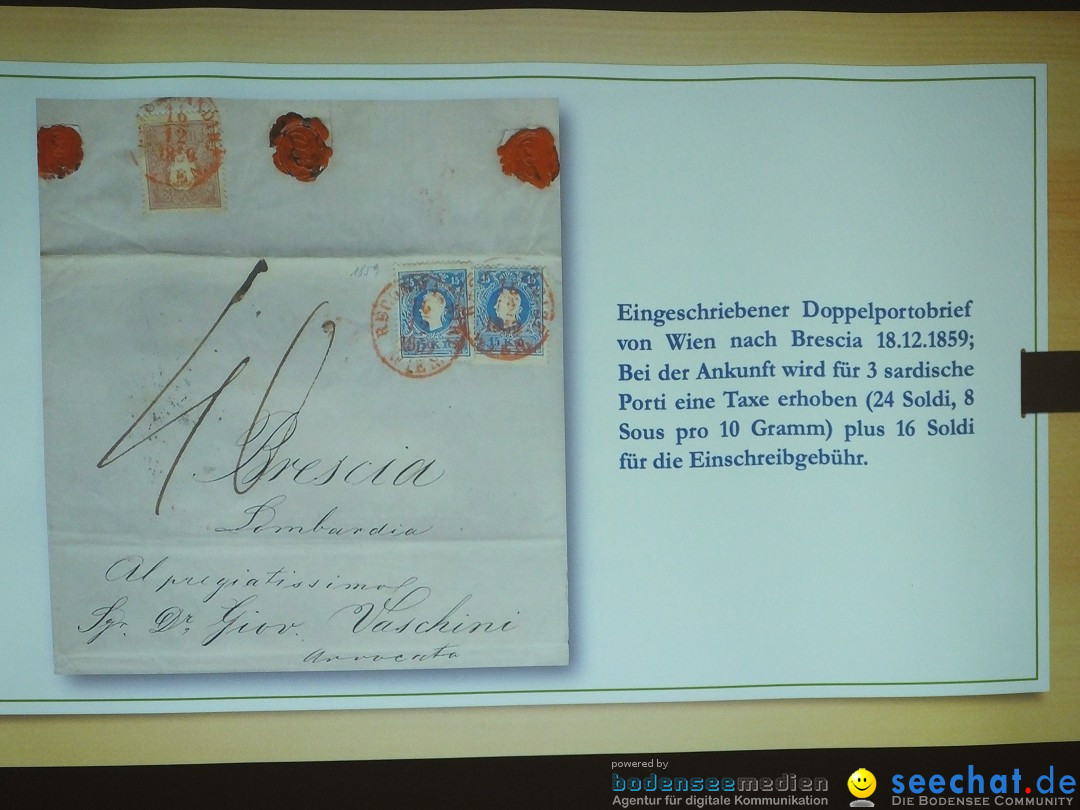 16
12
1859
40
Brescia
Lombardia
Al pregiatissimo
Sgr. Dr. Giov. Vaschini
Avvocato
15 15
WIEN
Eingeschriebener Doppelportobrief
von Wien nach Brescia 18.12.1859;
Bei der Ankunft wird für 3 sardische
Porti eine Taxe erhoben (24 Soldi, 8
Sous pro 10 Gramm) plus 16 Soldi
für die Einschreibgebühr.
powered by
bodenseemedien
Agentur für digitale Kommunikation
seechat.de
DIE BODENSEE COMMUNITY